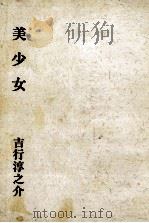 美少女
吉行淳之介